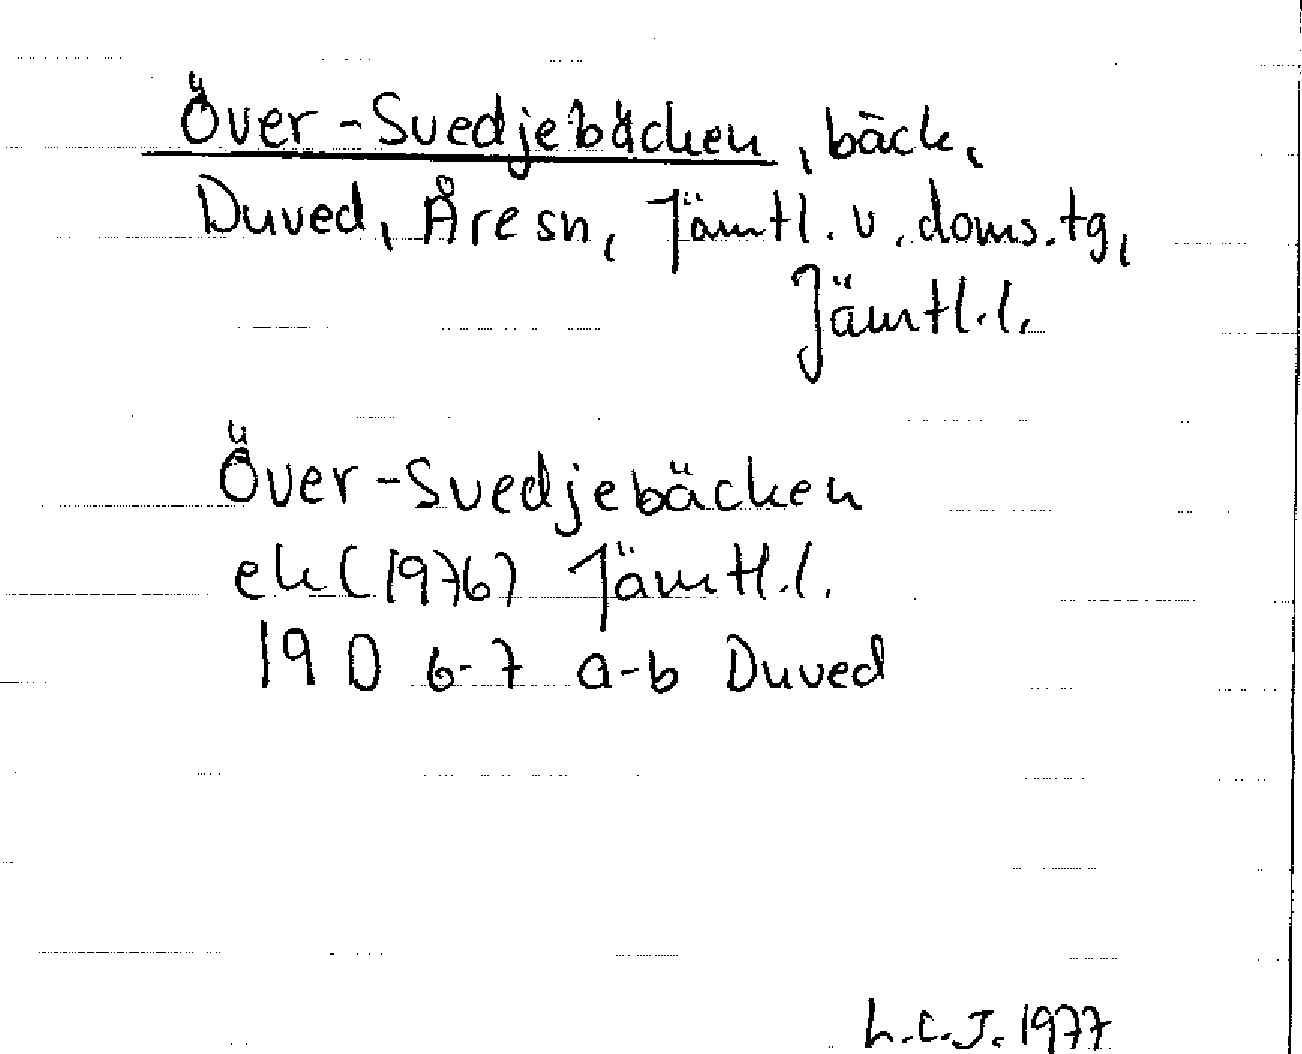 Över-Svedjebäcken, bäck,
Duved, Åre sn, Jämtl. v. doms.tg,
Jämtl.l.
Över-Svedjebäcken
ek (1976) Jämtl.l.
19 D 6-7 a-b Duved
L.C.J. 1977